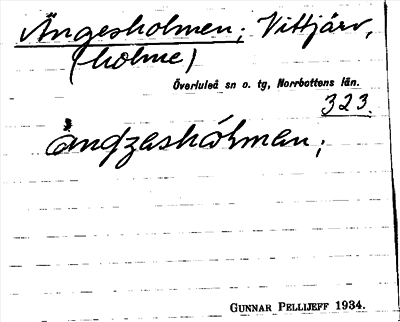 Ängesholmen; Vittjärv,
(holme)
Överluleå sn o. tg, Norrbottens län.
323.
åndzashólman;
GUNNAR PELLIJEFF 1934.